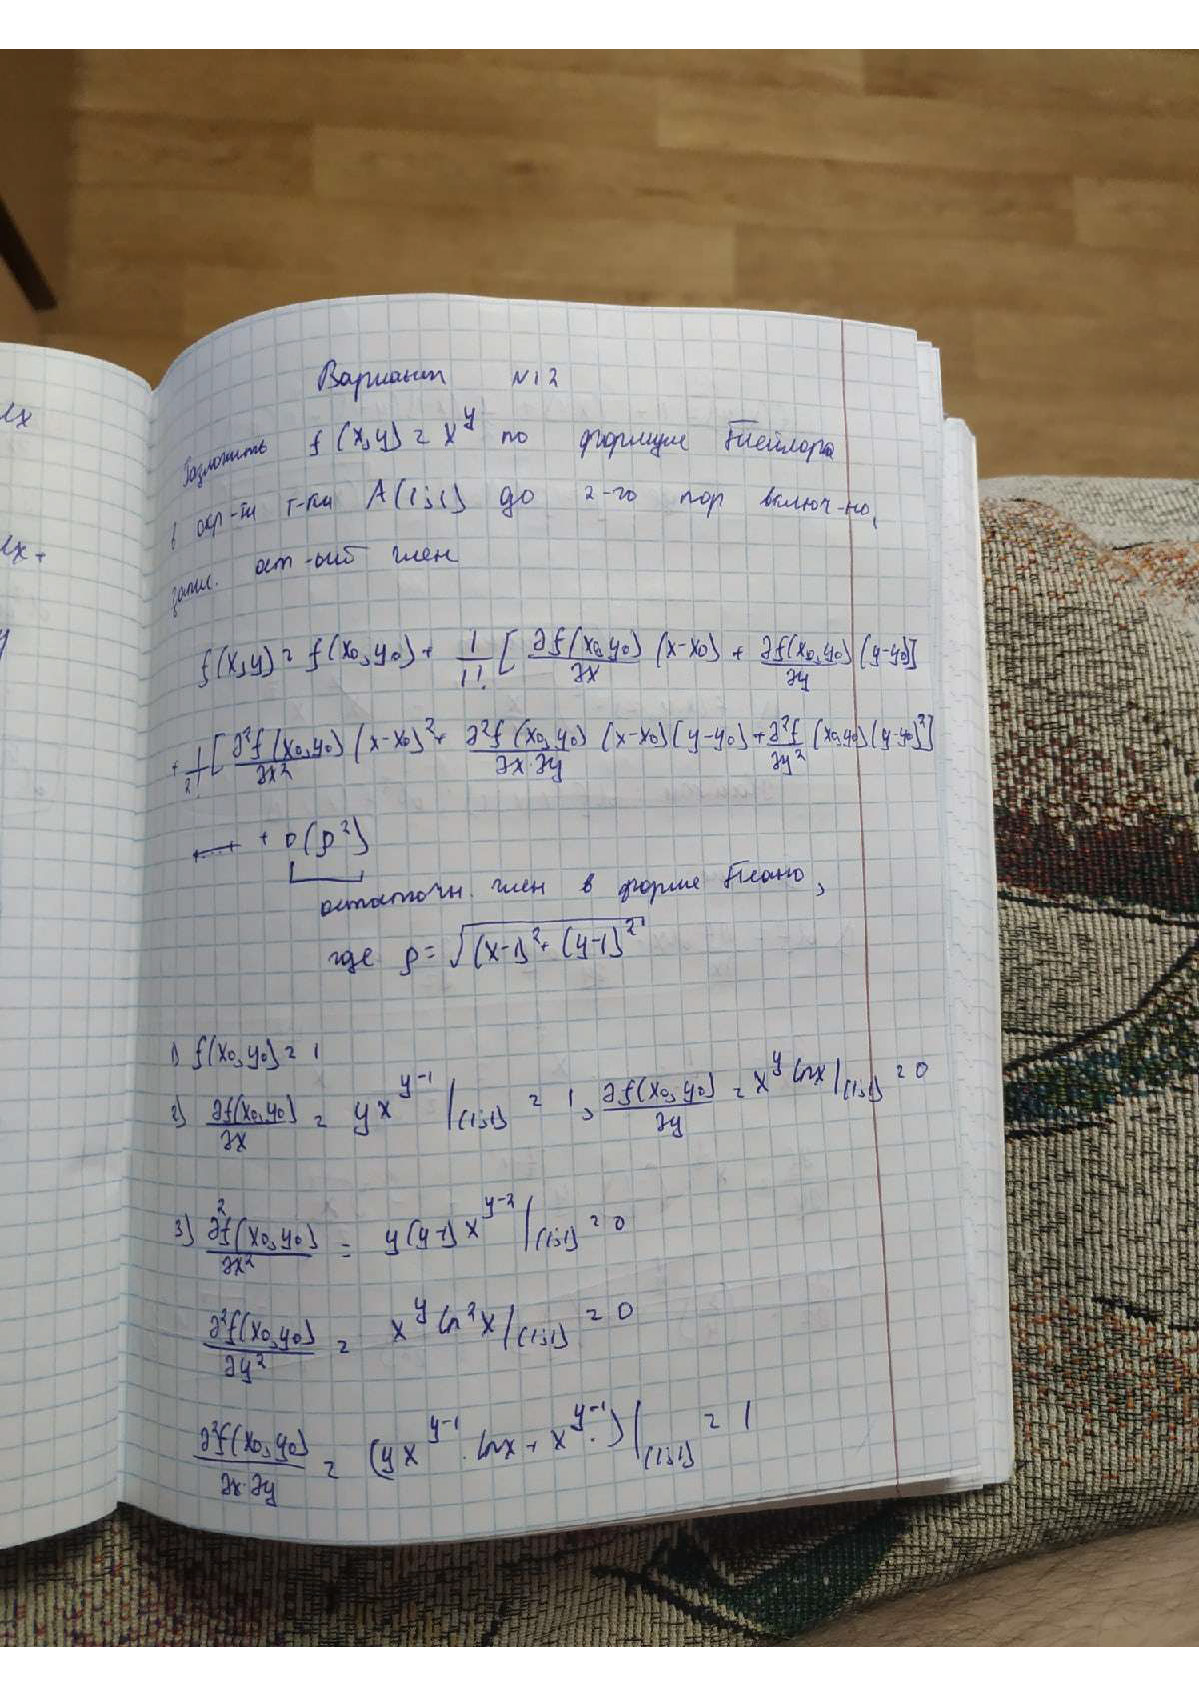 Вариант №12
Разложить f(x,y) = x^y по формуле Тейлора
в окр-ти т-ки A(1;1) до 2-го пор включ-но,
запис. ост-ый член
f(x,y) = f(x₀,y₀) + 1/1! [ ∂f(x₀,y₀)/∂x (x-x₀) + ∂f(x₀,y₀)/∂y (y-y₀)]
+ 1/2! [ ∂²f(x₀,y₀)/∂x² (x-x₀)² + ∂²f(x₀,y₀)/∂x·∂y (x-x₀)(y-y₀) + ∂²f/∂y² (x₀,y₀)(y-y₀)²]
+ o(ρ²)
остаточн. член в форме Пеано,
где ρ = √((x-1)² + (y-1)²)
1) f(x₀,y₀) = 1
2) ∂f(x₀,y₀)/∂x = yx^(y-1) |(1;1) = 1, ∂f(x₀,y₀)/∂y = x^y lnx |(1;1) = 0
3) ∂²f(x₀,y₀)/∂x² = y(y-1)x^(y-2) |(1;1) = 0
∂²f(x₀,y₀)/∂y² = x^y ln²x |(1;1) = 0
∂²f(x₀,y₀)/∂x·∂y = (yx^(y-1) · lnx + x^(y-1)) |(1;1) = 1